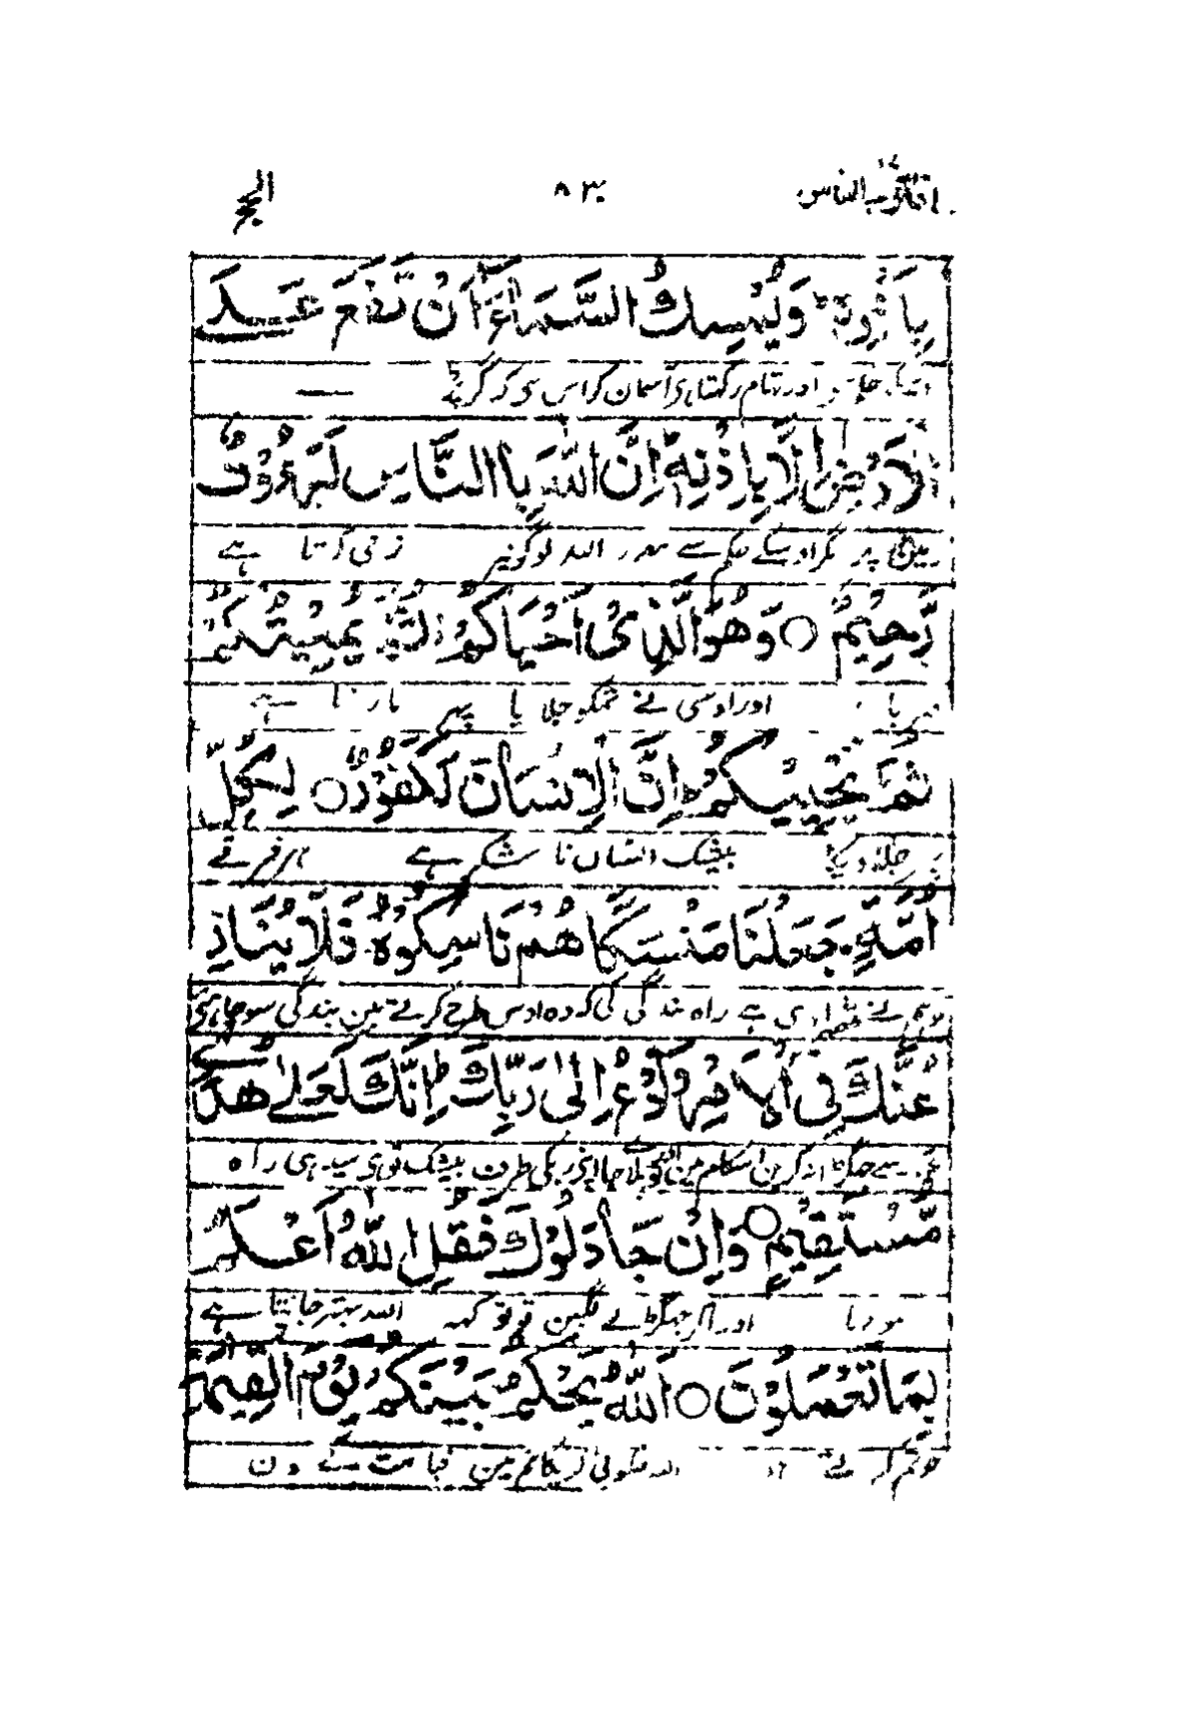 اقترب للناس ۱۷ ۸۳۰ الحج
بِاَمْرِهٖ وَيُمْسِكُ السَّمَآءَ اَنْ تَقَعَ عَلَى
اور تہام رکہتا ہی آسمان کو اس سی کہ گر پڑے
الْاَرْضِ اِلَّا بِاِذْنِهٖ اِنَّ اللّٰهَ بِالنَّاسِ لَرَءُوْفٌ
زمین پر مگر اوسکے حکم سے اللہ لوگونپر نرمی کرتا ہے
رَّحِيْمٌ ۝ وَهُوَ الَّذِىْ اَحْيَاكُمْ ثُمَّ يُمِيْتُكُمْ
مہربان اور اوسی نے تمکو جلایا پہر مارتا ہے
ثُمَّ يُحْيِيْكُمْ اِنَّ الْاِنْسَانَ لَكَفُوْرٌ ۝ لِكُلِّ
پہر جلاویگا بیشک انسان ناشکر ہے ہر فرقے
اُمَّةٍ جَعَلْنَا مَنْسَكًا هُمْ نَاسِكُوْهُ فَلَا يُنَازِ
کو ہم نے ٹھہرا دی ہے راہ بندگی کی کہ وہ اوس طرح کرتے ہین بندگی سو چاہئی
عُنَّكَ فِى الْاَمْرِ وَادْعُ اِلٰى رَبِّكَ اِنَّكَ لَعَلٰى هُدًى
تجہہ سے جہگڑا نہ کرین اس کام مین اور تو بلائے جا اپنی رب کی طرف بیشک تو ہی سیدہی راہ
مُّسْتَقِيْمٍ ۝ وَاِنْ جَادَلُوْكَ فَقُلِ اللّٰهُ اَعْلَمُ
اور اگر جہگڑنے لگین تو تو کہہ اللہ بہتر جانتا ہے
بِمَا تَعْمَلُوْنَ ۝ اَللّٰهُ يَحْكُمُ بَيْنَكُمْ يَوْمَ الْقِيٰمَةِ
جو تم کرتے ہو اللہ کریگا تم مین قیامت کے دن